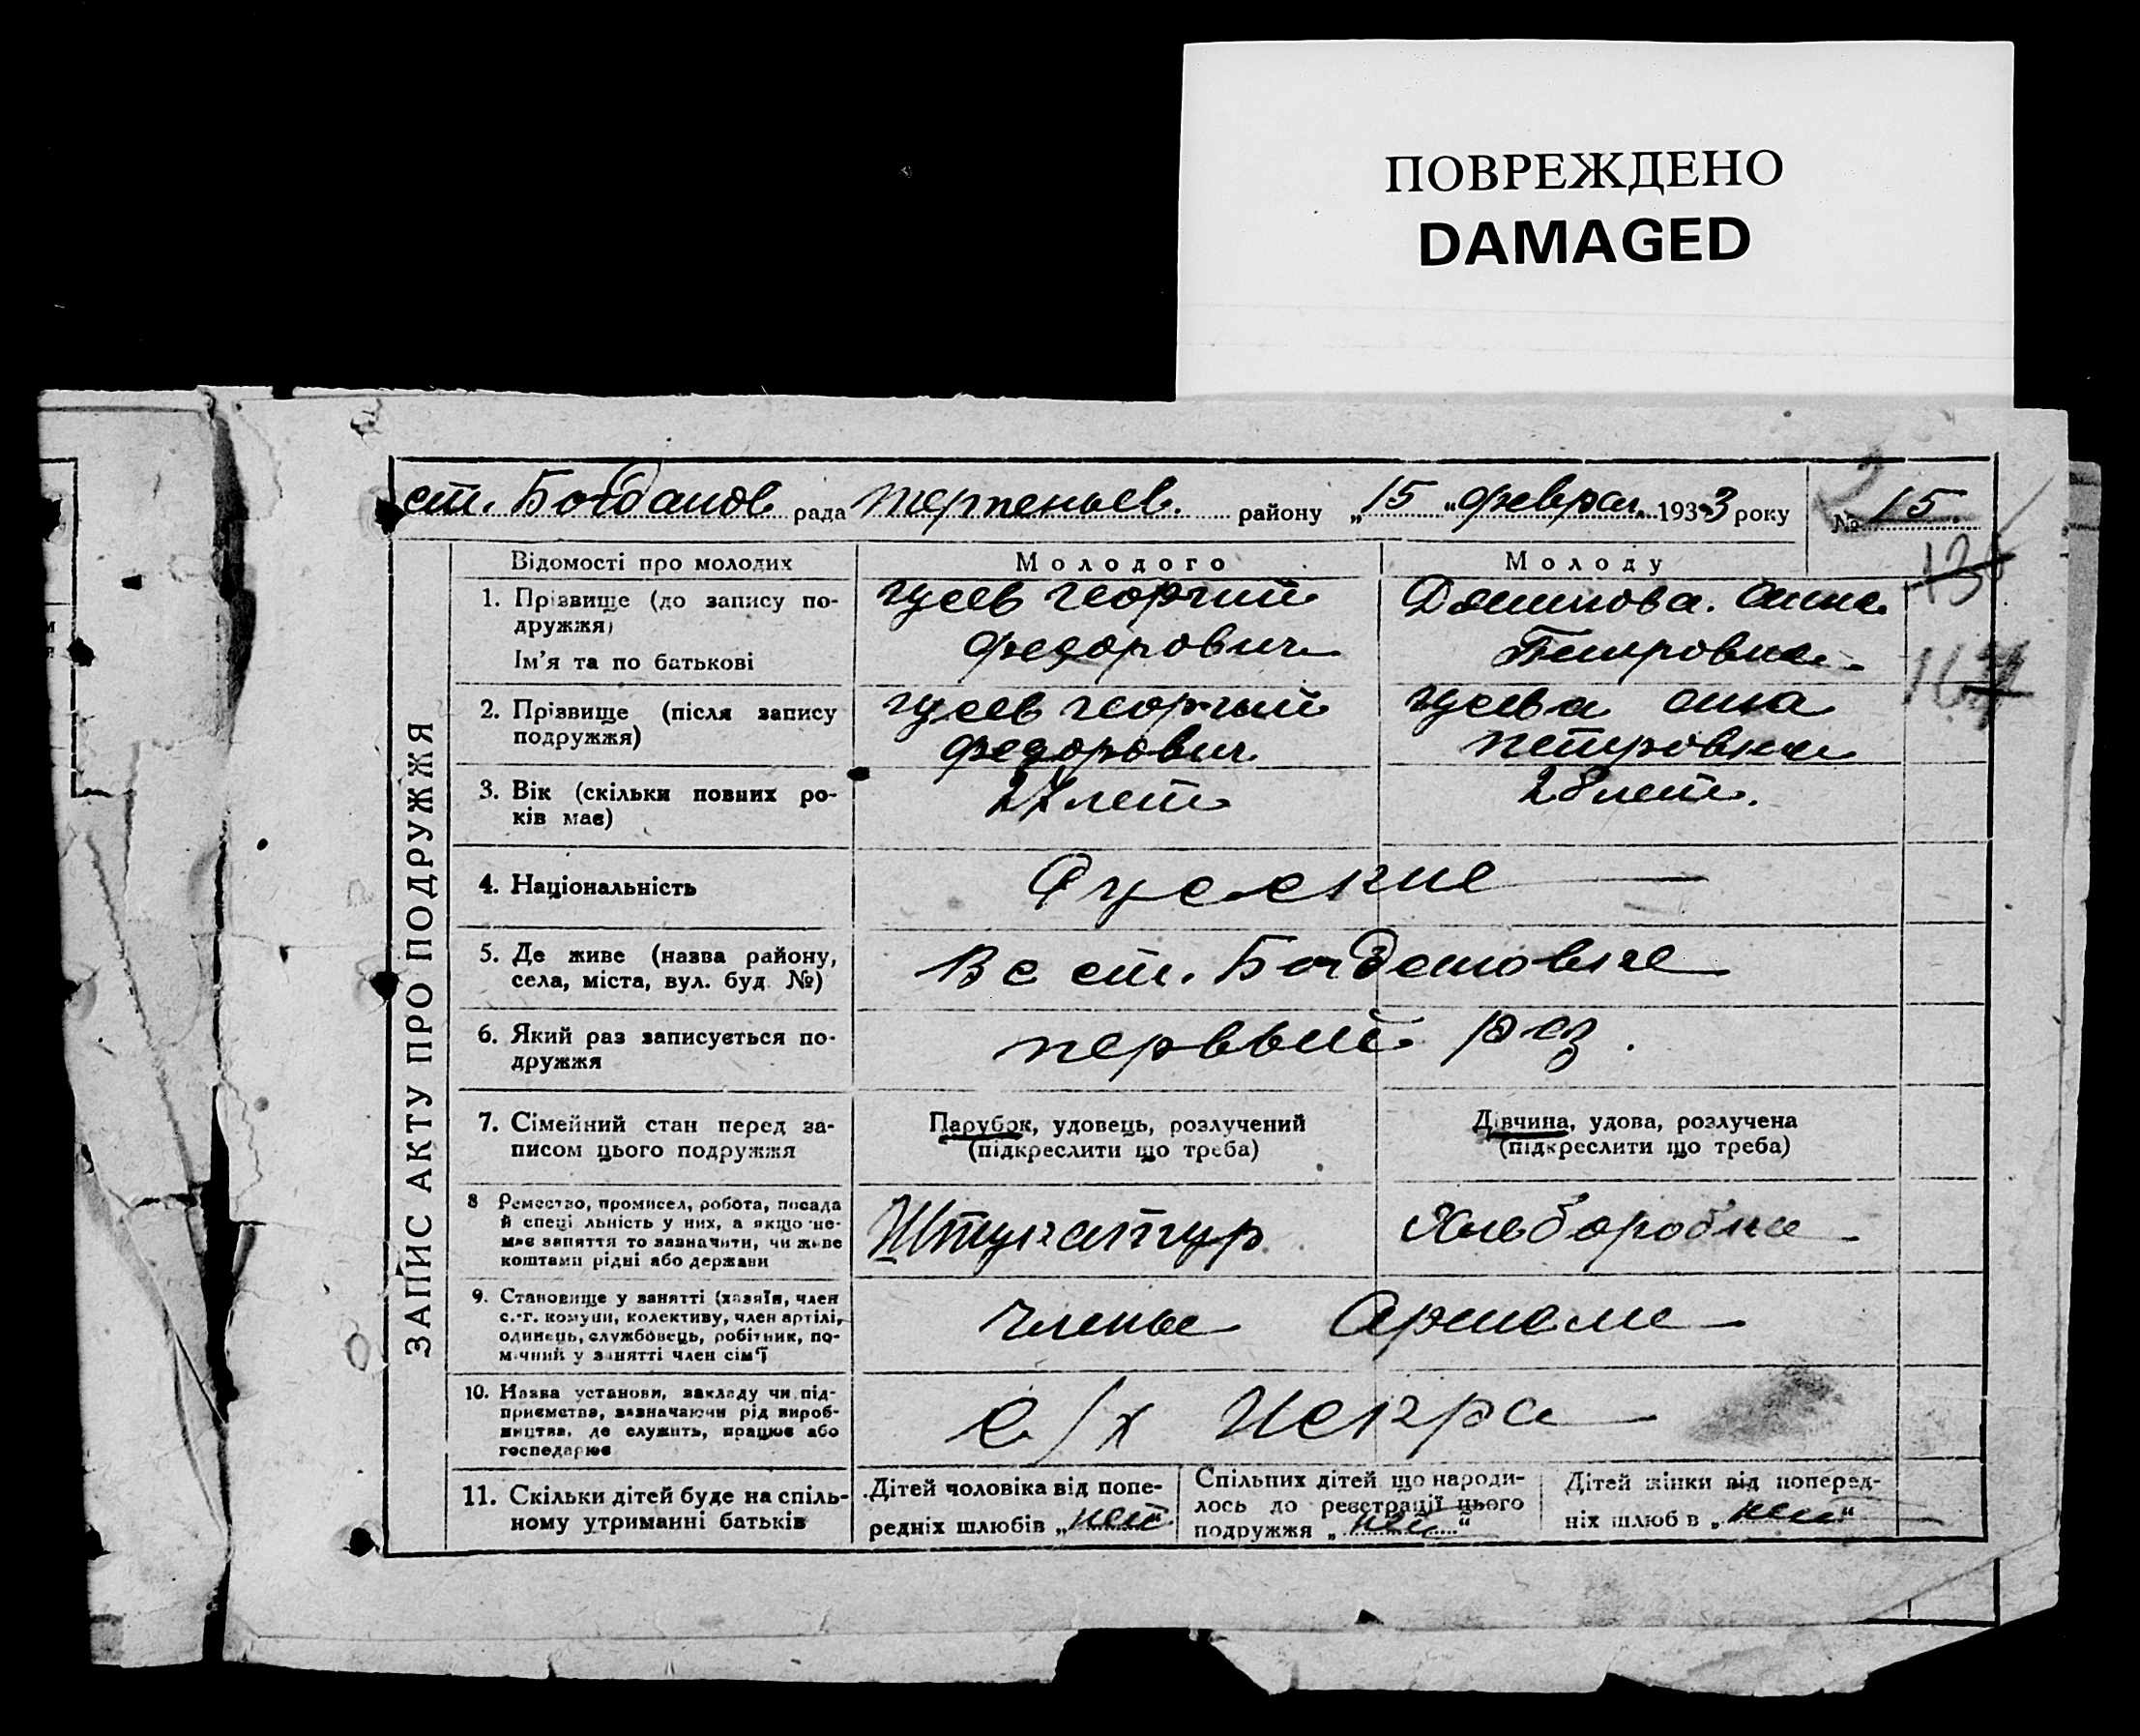 ПОВРЕЖДЕНО
DAMAGED
ст. Богданов. рада Терпеньев. району „15„ феврал. 1933 року № 15.
ЗАПИС АКТУ ПРО ПОДРУЖЖЯ
Відомості про молодих Молодого Молоду
1. Прізвище (до запису по-
дружжя)
Ім'я та по батькові
Гусев Георгий
Федорович
Анна
Петровна
2. Прізвище (після запису
подружжя)
Гусев Георгий
Федорович
Гусева Анна
Петровна
3. Вік (скільки повних ро-
ків має)
27 лет
28 лет.
4. Національність
Русские
5. Де живе (назва району,
села, міста, вул. буд. №)
В с ст. Богдановке
6. Який раз записується по-
дружжя
первый раз.
7. Сімейний стан перед за-
писом цього подружжя
Парубок, удовець, розлучений
(підкреслити що треба)
Дівчина, удова, розлучена
(підкреслити що треба)
8 Ремество, промисел, робота, посада
й спеці льність у них, а якщо не-
має заняття то зазначити, чи живе
коштами рідні або держави
Штукатур
Хлеборобка
9. Становище у занятті (хазяїн, член
с.-г. комуни, колективу, член артілі,
одинець, службовець, робітник, по-
мічний у занятті член сім'ї
члены Артели
10. Назва установи, закладу чи під-
приємства, зазначаючи рід вироб-
ництва, де служить, працює або
господарює
с/х Искра
11. Скільки дітей буде на спіль-
ному утриманні батьків
Дітей чоловіка від попе-
редніх шлюбів „нет“
Спільних дітей що народи-
лось до реєстрації цього
подружжя „нет“
Дітей жінки від поперед-
ніх шлюб в „нет“